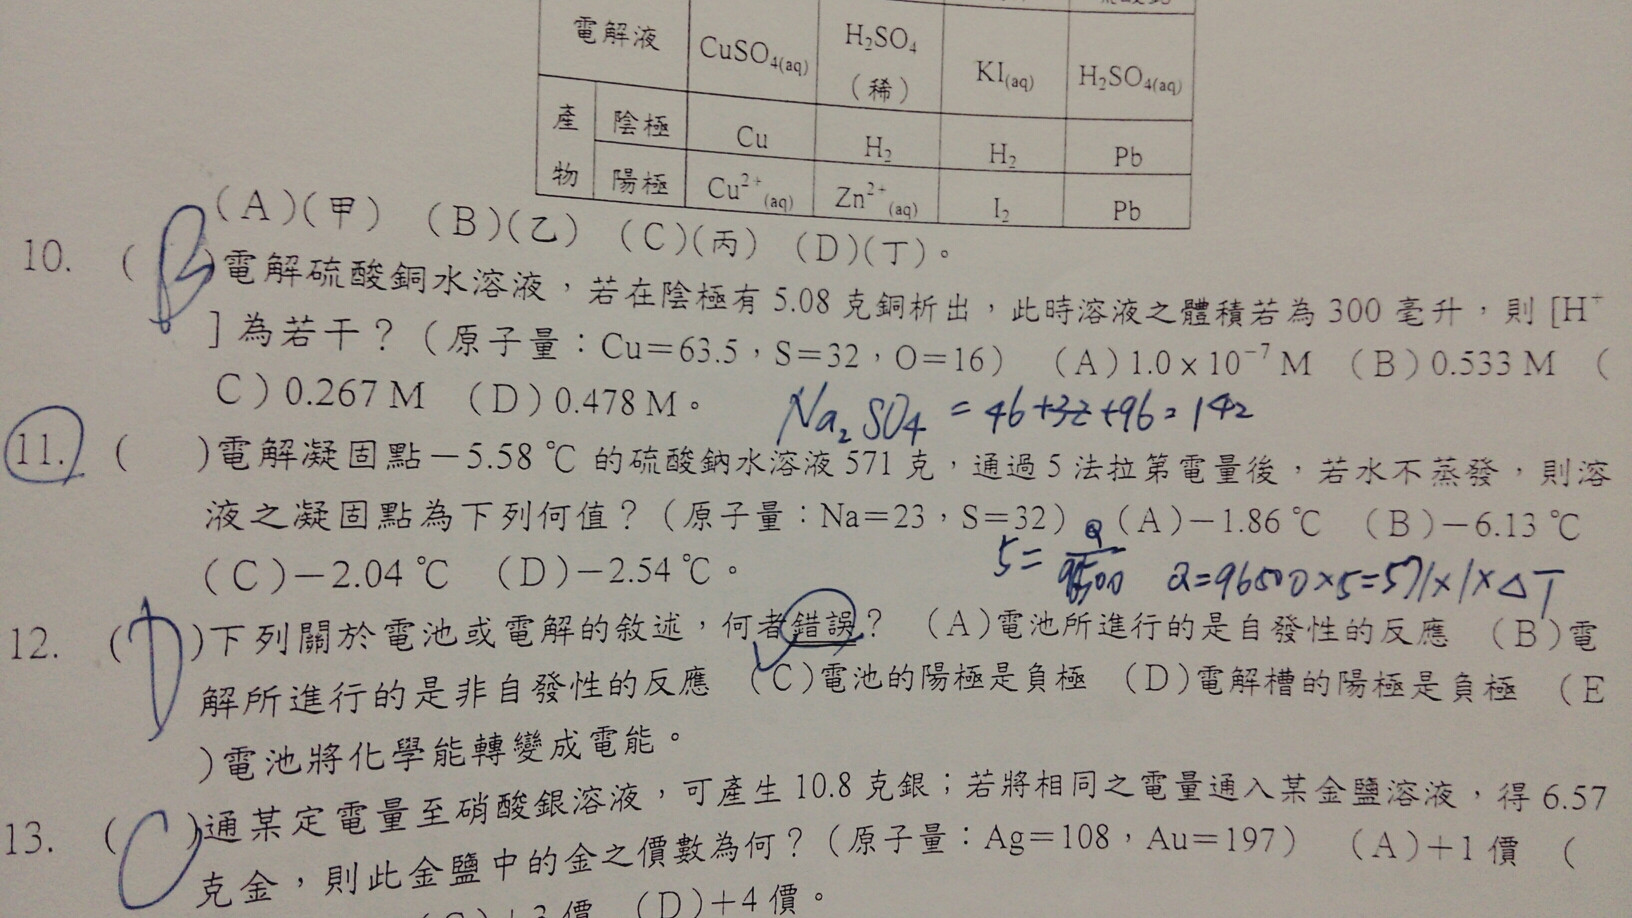 電解液 CuSO₄(aq) H₂SO₄（稀） KI(aq) H₂SO₄(aq)
產物 陰極 Cu H₂ H₂ Pb
陽極 Cu²⁺(aq) Zn²⁺(aq) I₂ Pb
(A)(甲) (B)(乙) (C)(丙) (D)(丁)。
10. ( B )電解硫酸銅水溶液，若在陰極有 5.08 克銅析出，此時溶液之體積若為 300 毫升，則 [H⁺
] 為若干？（原子量：Cu=63.5，S=32，O=16） (A)1.0×10⁻⁷ M (B)0.533 M (
C)0.267 M (D)0.478 M。
Na₂SO₄ = 46+32+96=142
11. ( )電解凝固點－5.58 ℃ 的硫酸鈉水溶液 571 克，通過 5 法拉第電量後，若水不蒸發，則溶
液之凝固點為下列何值？（原子量：Na=23，S=32） (A)－1.86 ℃ (B)－6.13 ℃
(C)－2.04 ℃ (D)－2.54 ℃。
5= Q/96500 Q=96500×5=571×1×△T
12. ( D )下列關於電池或電解的敘述，何者錯誤？ (A)電池所進行的是自發性的反應 (B)電
解所進行的是非自發性的反應 (C)電池的陽極是負極 (D)電解槽的陽極是負極 (E
)電池將化學能轉變成電能。
13. ( C )通某定電量至硝酸銀溶液，可產生 10.8 克銀；若將相同之電量通入某金鹽溶液，得 6.57
克金，則此金鹽中的金之價數為何？（原子量：Ag=108，Au=197） (A)+1 價 (
(C)+3 價 (D)+4 價。